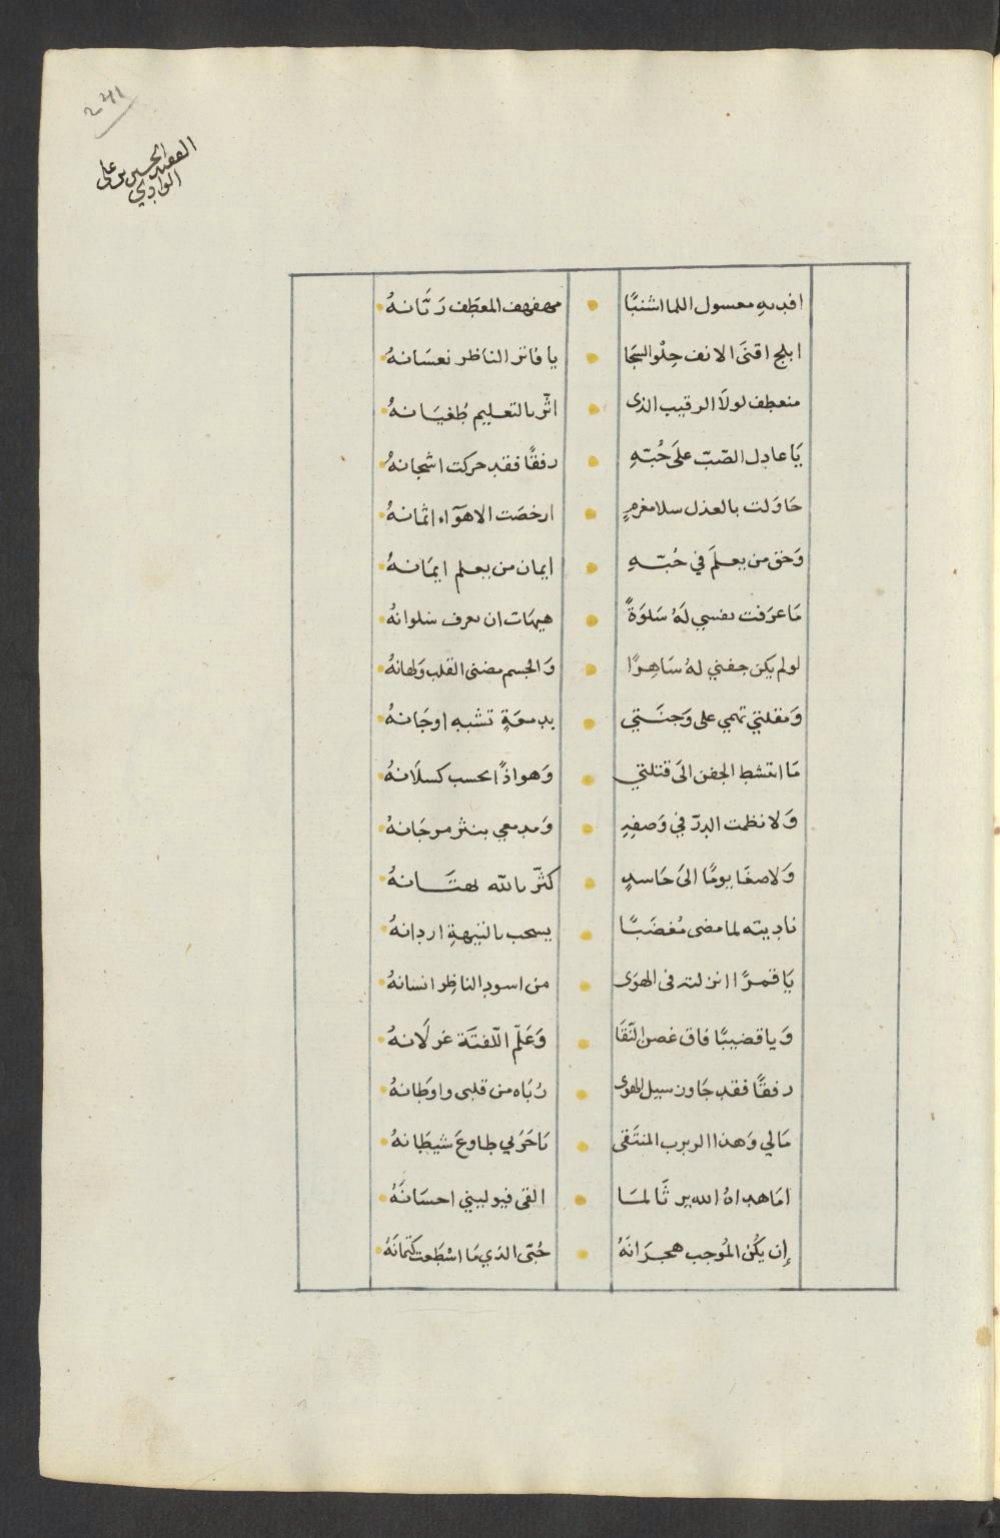 241
الفقيه الحسين بن علي
الوادي
افديه معسول اللما اشنبًا مهفهف المعطف رَنَّانهُ
ابلج اقنَى الانف حِلْو السَجَا يا فاتر الناظر نعسَانهُ
منعطف لولَا الرقيب الذى اثّر بالتعليم طُغيَانهُ
يَا عاذل الصّبّ علَى حُبّهِ رفقًا فقد حركت اشجانهُ
حَاوَلت بالعذل سلا مغرمٍ ارخصَت الاهوَآء اثمانهُ
وَحق من يعلَم في حُبّهِ ايمان من يعلم ايمَانهُ
مَا عرَفت نفسي لَهُ سَلوَةً هيهَات ان تعرف سُلوانهُ
لو لم يكن جفني لهُ سَاهِرًا وَالجسم مضنى القلب وَلهانهُ
وَمقلتي تهمي على وَجنَتي بدِمعَةٍ تشبه اوجَانهُ
مَا انتشط الجفن الَى قتلتي وَهو اذًا يحسب كسلَانهُ
وَلا نظمت الدرّ في وَصفِهِ وَمدمعي ينثر مرجَانهُ
وَلا صغَا يومًا الىَ حَاسدٍ كثّر بالله بهتَانهُ
ناديته لما مضى مُغضَبًا يسحب بالتيهةِ اردانهُ
يَا قمرًا انزلته فى الهوَى من اسود الناظِر انسانهُ
وَيا قضيبًا فاق غصن النّقَا وَعَلّم اللّفتَة غزلَانهُ
رفقًا فقد جَاوز سيل الهوى رُبَاه من قلبى واوطَانهُ
مَالي وَهذا الربرب المنتَقى طاوعَ شيطَانهُ
امَا هداهُ الله يرثَا لمَا القى فيوليني احسَانَهُ
إن يكُنْ المُوجب هجرَانَهُ حُبّى الذي مَا اسْطَعت كتمَانَهُ